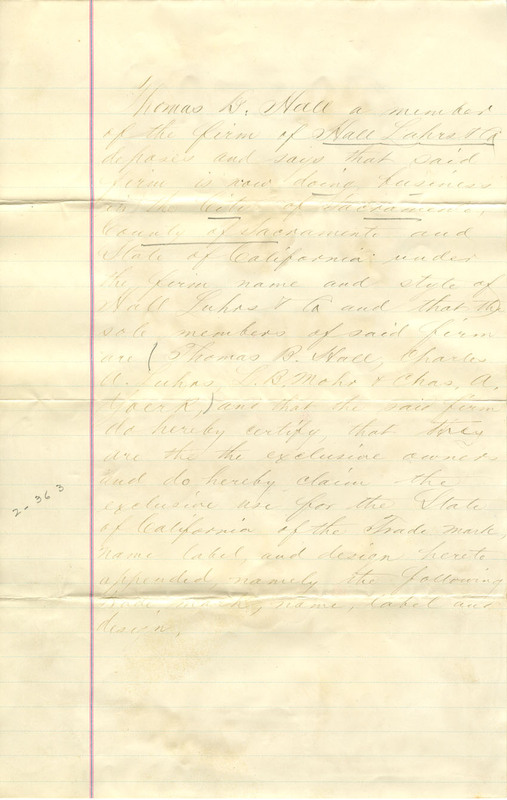 Thomas B. Hall a member
of the firm of Hall Luhrs & Co
deposes and says that said
firm is now doing business
in the City of Sacramento,
County of Sacramento and
State of California under
the firm name and style of
Hall Luhrs & Co and that the
sole members of said firm
are (Thomas B. Hall, Charles
A. Luhrs, L. B. Mohr & Chas, A.
) and that the said firm
do hereby certify, that they
are the the exclusive owners
and do hereby claim the
exclusive use for the State
of California of the Trade mark,
name label, and design hereto
appended, namely the following
trade, mark, name, label and
design.
2-363